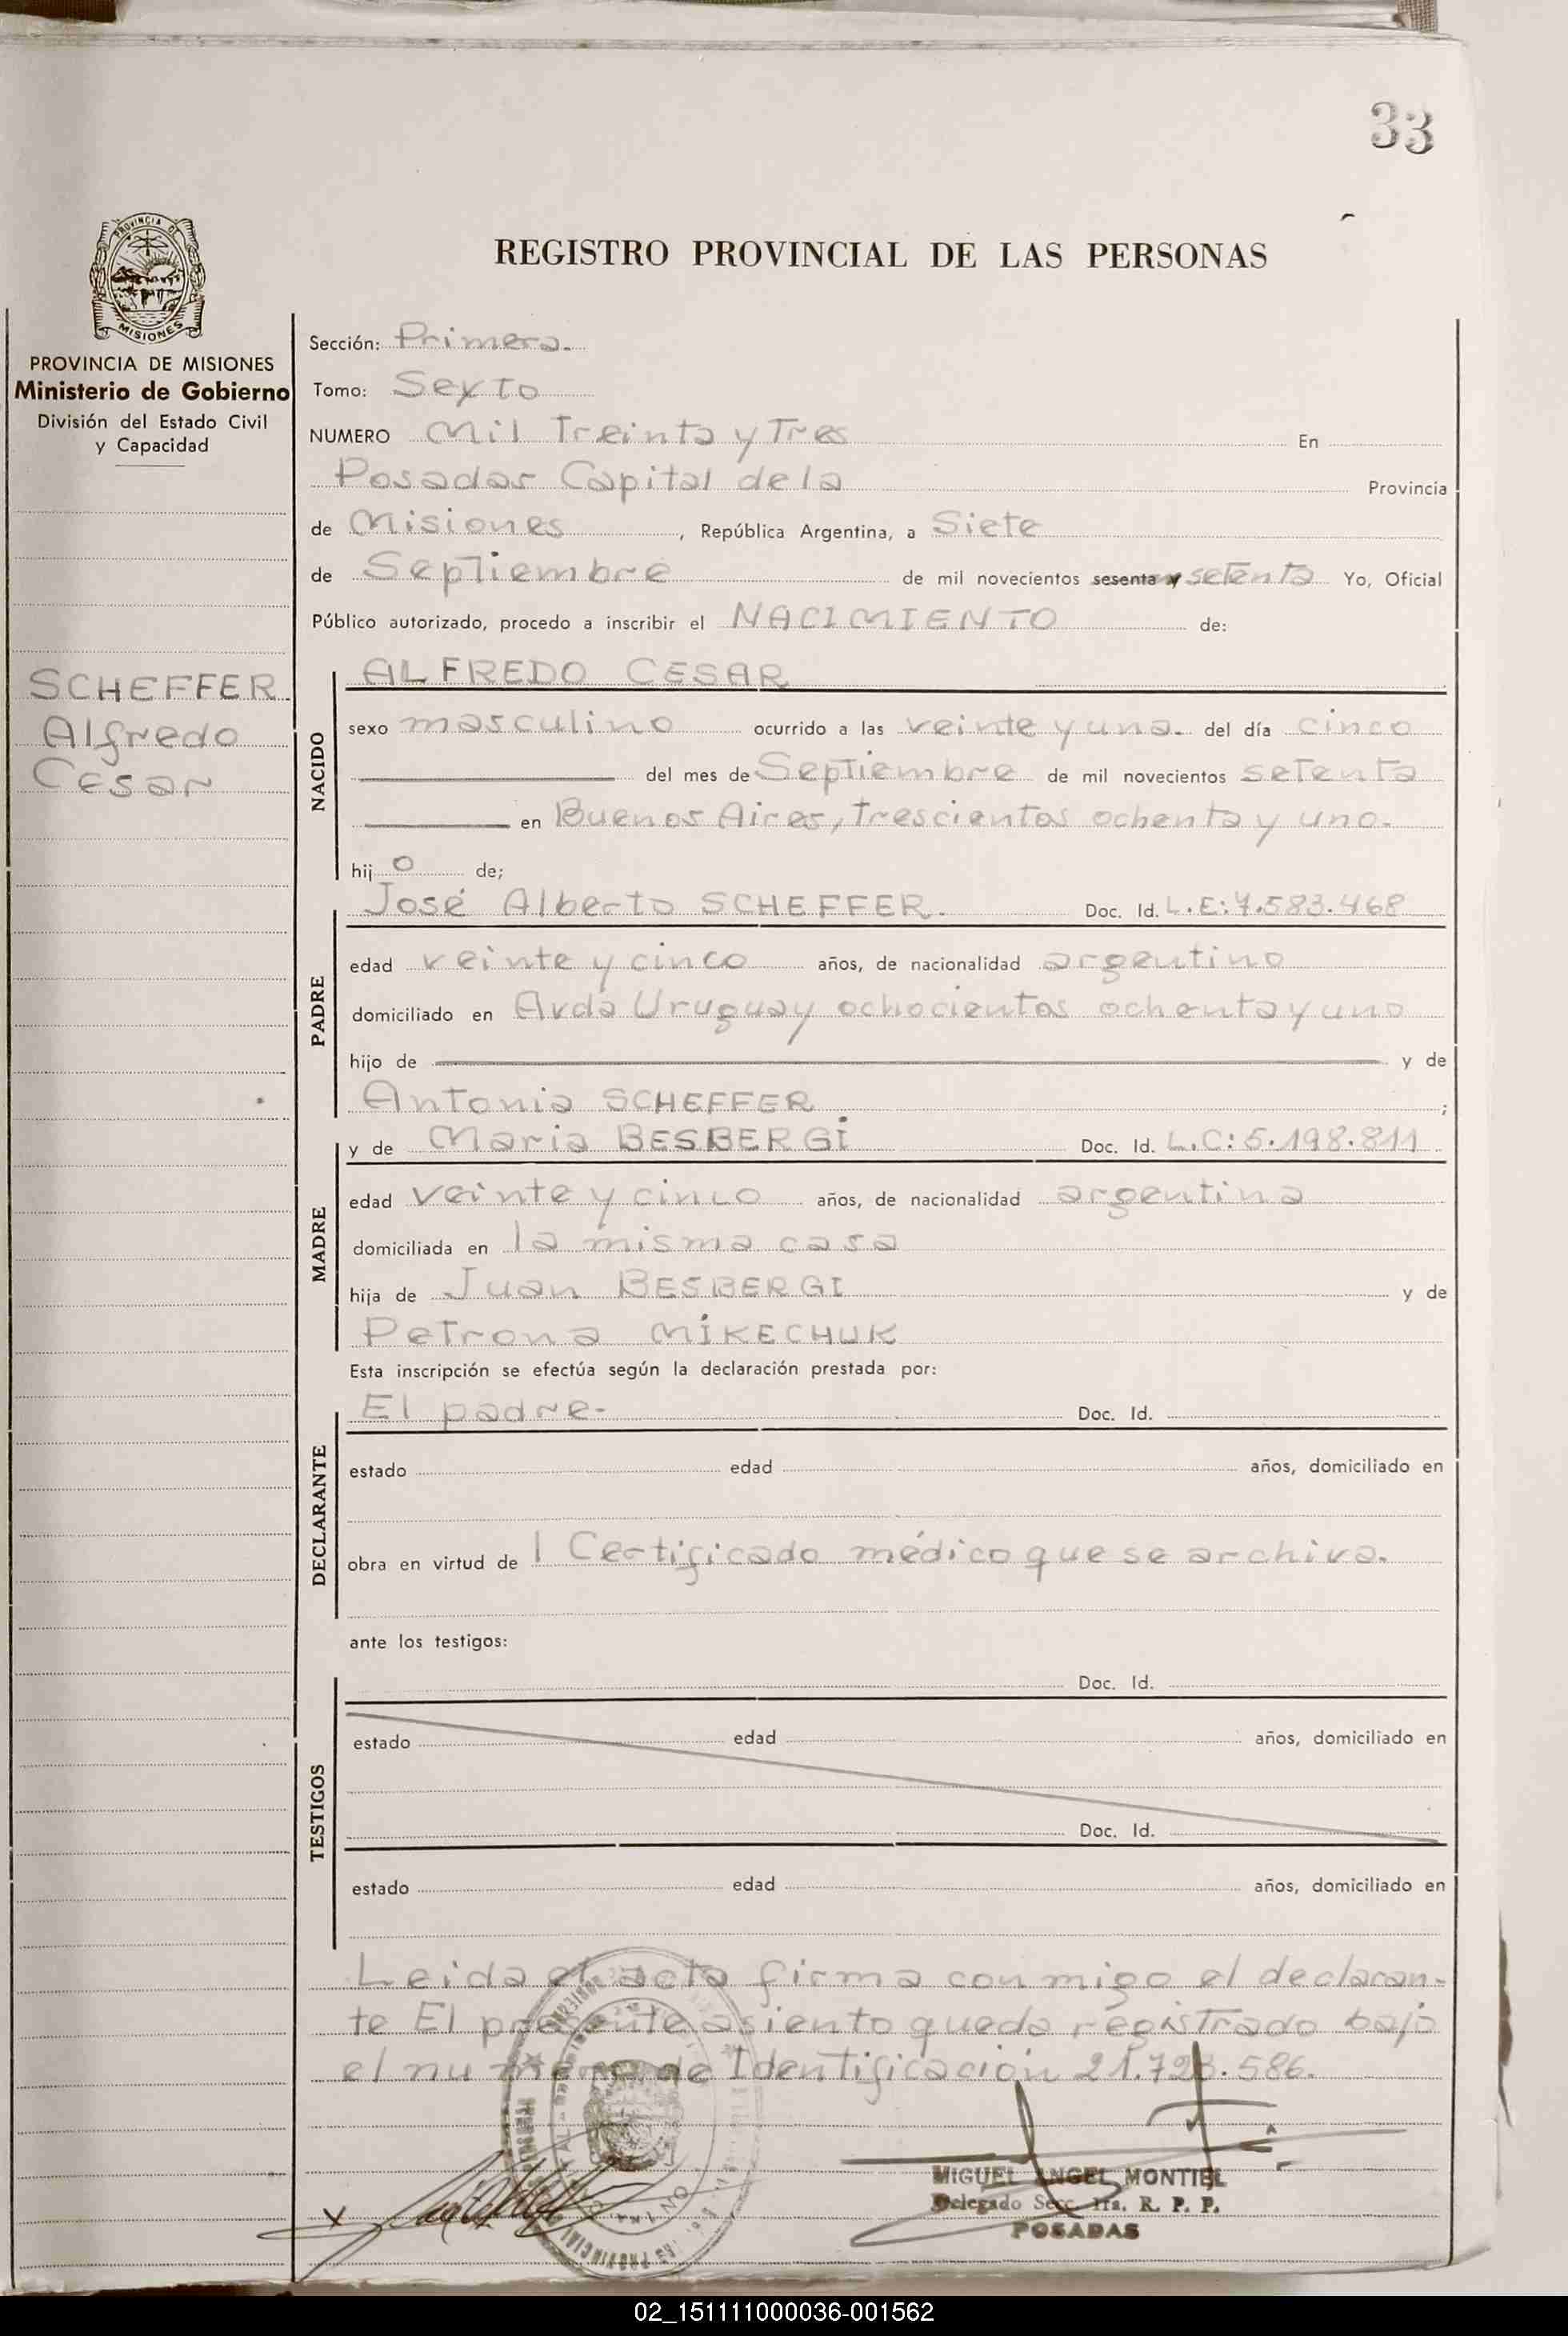 33
PROVINCIA DE
MISIONES
REGISTRO PROVINCIAL DE LAS PERSONAS
PROVINCIA DE MISIONES
Ministerio de Gobierno
División del Estado Civil
y Capacidad
SCHEFFER
Alfredo
Cesar
Sección: Primera.
Tomo: Sexto
NUMERO Mil Treinta y Tres En
Posadas Capital de la Provincia
de Misiones, República Argentina, a Siete
de Septiembre de mil novecientos sesenta y setenta Yo, Oficial
Público autorizado, procedo a inscribir el NACIMIENTO de:
NACIDO
ALFREDO CESAR
sexo masculino ocurrido a las veinte y una. del día cinco
del mes de Septiembre de mil novecientos setenta
en Buenos Aires, trescientos ochenta y uno.
hij o de;
PADRE
José Alberto SCHEFFER. Doc. Id. L.E: 7.583.468
edad veinte y cinco años, de nacionalidad argentino
domiciliado en Avda Uruguay ochocientos ochenta y uno
hijo de y de
Antonia SCHEFFER ;
MADRE
y de Maria BESBERGI Doc. Id. L.C: 5.198.811
edad veinte y cinco años, de nacionalidad argentina
domiciliada en la misma casa
hija de Juan BESBERGI y de
Petrona MIKECHUK
Esta inscripción se efectúa según la declaración prestada por:
DECLARANTE
El padre- Doc. Id.
estado edad años, domiciliado en
obra en virtud de 1 Certificado médico que se archiva.
ante los testigos:
TESTIGOS
Doc. Id.
estado edad años, domiciliado en
Doc. Id.
estado edad años, domiciliado en
Leida el acta firma conmigo el declaran-
te El presente asiento queda registrado bajo
el numero de Identificación 21.723.586.
MIGUEL ANGEL MONTIEL
Delegado Secc. 1ra. R. P. P.
POSADAS
02_151111000036-001562